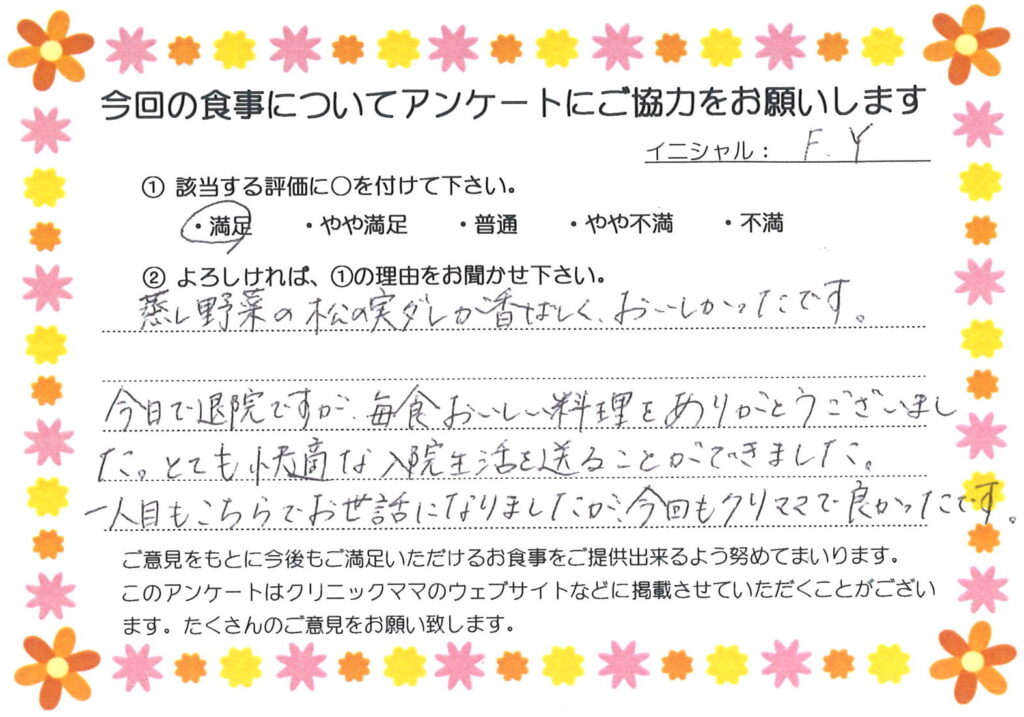 今回の食事についてアンケートにご協力をお願いします
イニシャル： F.Y
① 該当する評価に〇を付けて下さい。
・満足 ・やや満足 ・普通 ・やや不満 ・不満
② よろしければ、①の理由をお聞かせ下さい。
蒸し野菜の松の実ダレが香ばしく、おいしかったです。
今日で退院ですが、毎食おいしい料理をありがとうございまし
た。とても快適な入院生活を送ることができました。
一人目もこちらでお世話になりましたが、今回もクリママで良かったです。
ご意見をもとに今後もご満足いただけるお食事をご提供出来るよう努めてまいります。
このアンケートはクリニックママのウェブサイトなどに掲載させていただくことがござい
ます。たくさんのご意見をお願い致します。